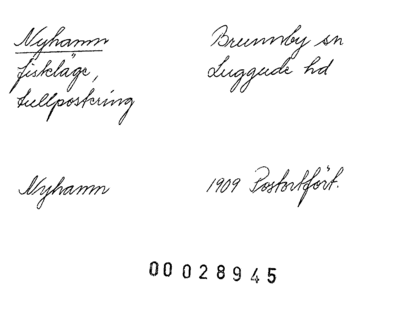 Nyhamn
fiskläge,
tullpostering
Brunnby sn
Luggude hd
Nyhamn
1909 Postortfört.
00 028945